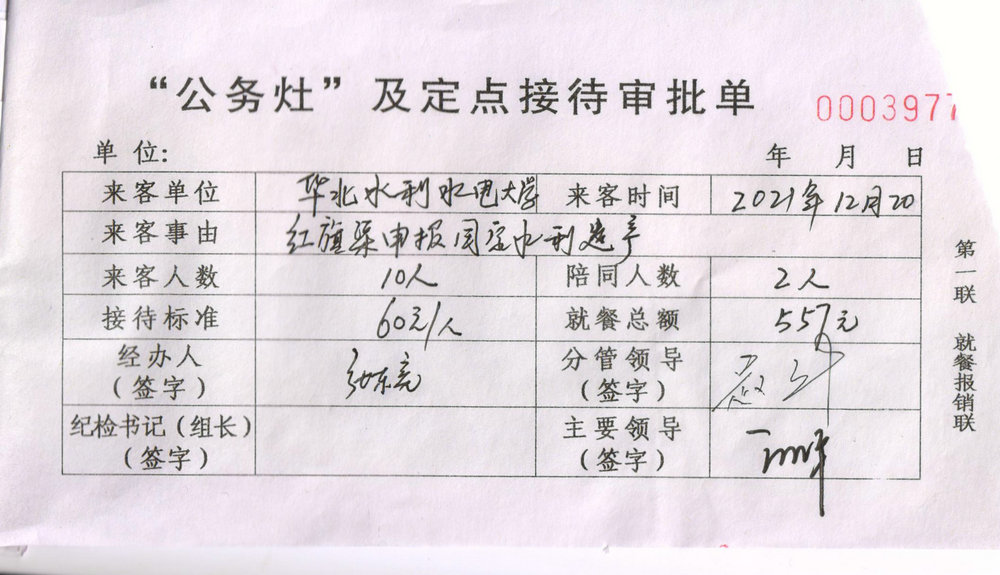 “公务灶”及定点接待审批单
0003977
单 位: 年 月 日
来客单位 华北水利水电大学 来客时间 2021年12月20
来客事由 红旗渠申报国家水利遗产
来客人数 10人 陪同人数 2人
接待标准 60元/人 就餐总额 557元
经办人
(签字)
分管领导
(签字)
纪检书记(组长)
(签字)
主要领导
(签字)
第一联 就餐报销联